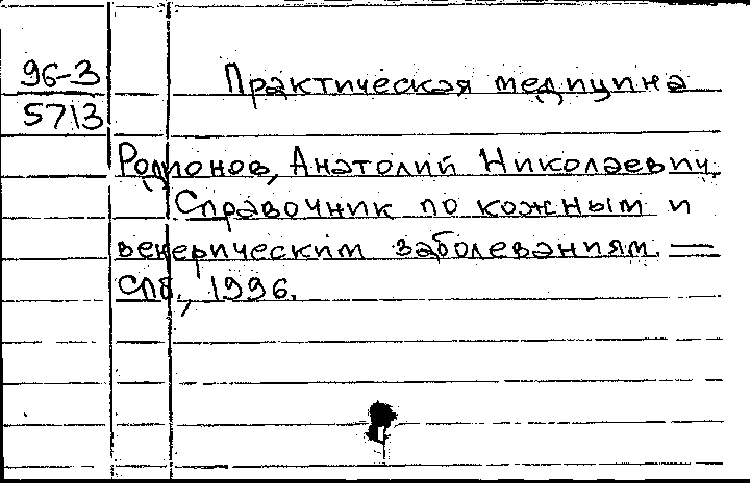 96-3
5713
Практическая медицина
Родионов, Анатолий Николаевич.
Справочник по кожным и
венерическим заболеваниям. —
Спб., 1996.